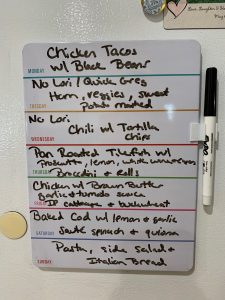 Chicken Tacos
w/ Black Beans
MONDAY
No Lori / Quick Greg
Ham, veggies, sweet
potato mashed
TUESDAY
No Lori
Chili w/ Tortilla
Chips
WEDNESDAY
Pan Roasted Tilefish w/
Prosciutto, lemon, white wine
Broccolini & Rolls
THURSDAY
Chicken w/ Brown Butter
garlic & tomato sauce
FRIDAY
IP cabbage & buckwheat
Baked Cod w/ lemon & garlic
saute spinach & quinoa
SATURDAY
Pasta, side salad &
Italian Bread
SUNDAY